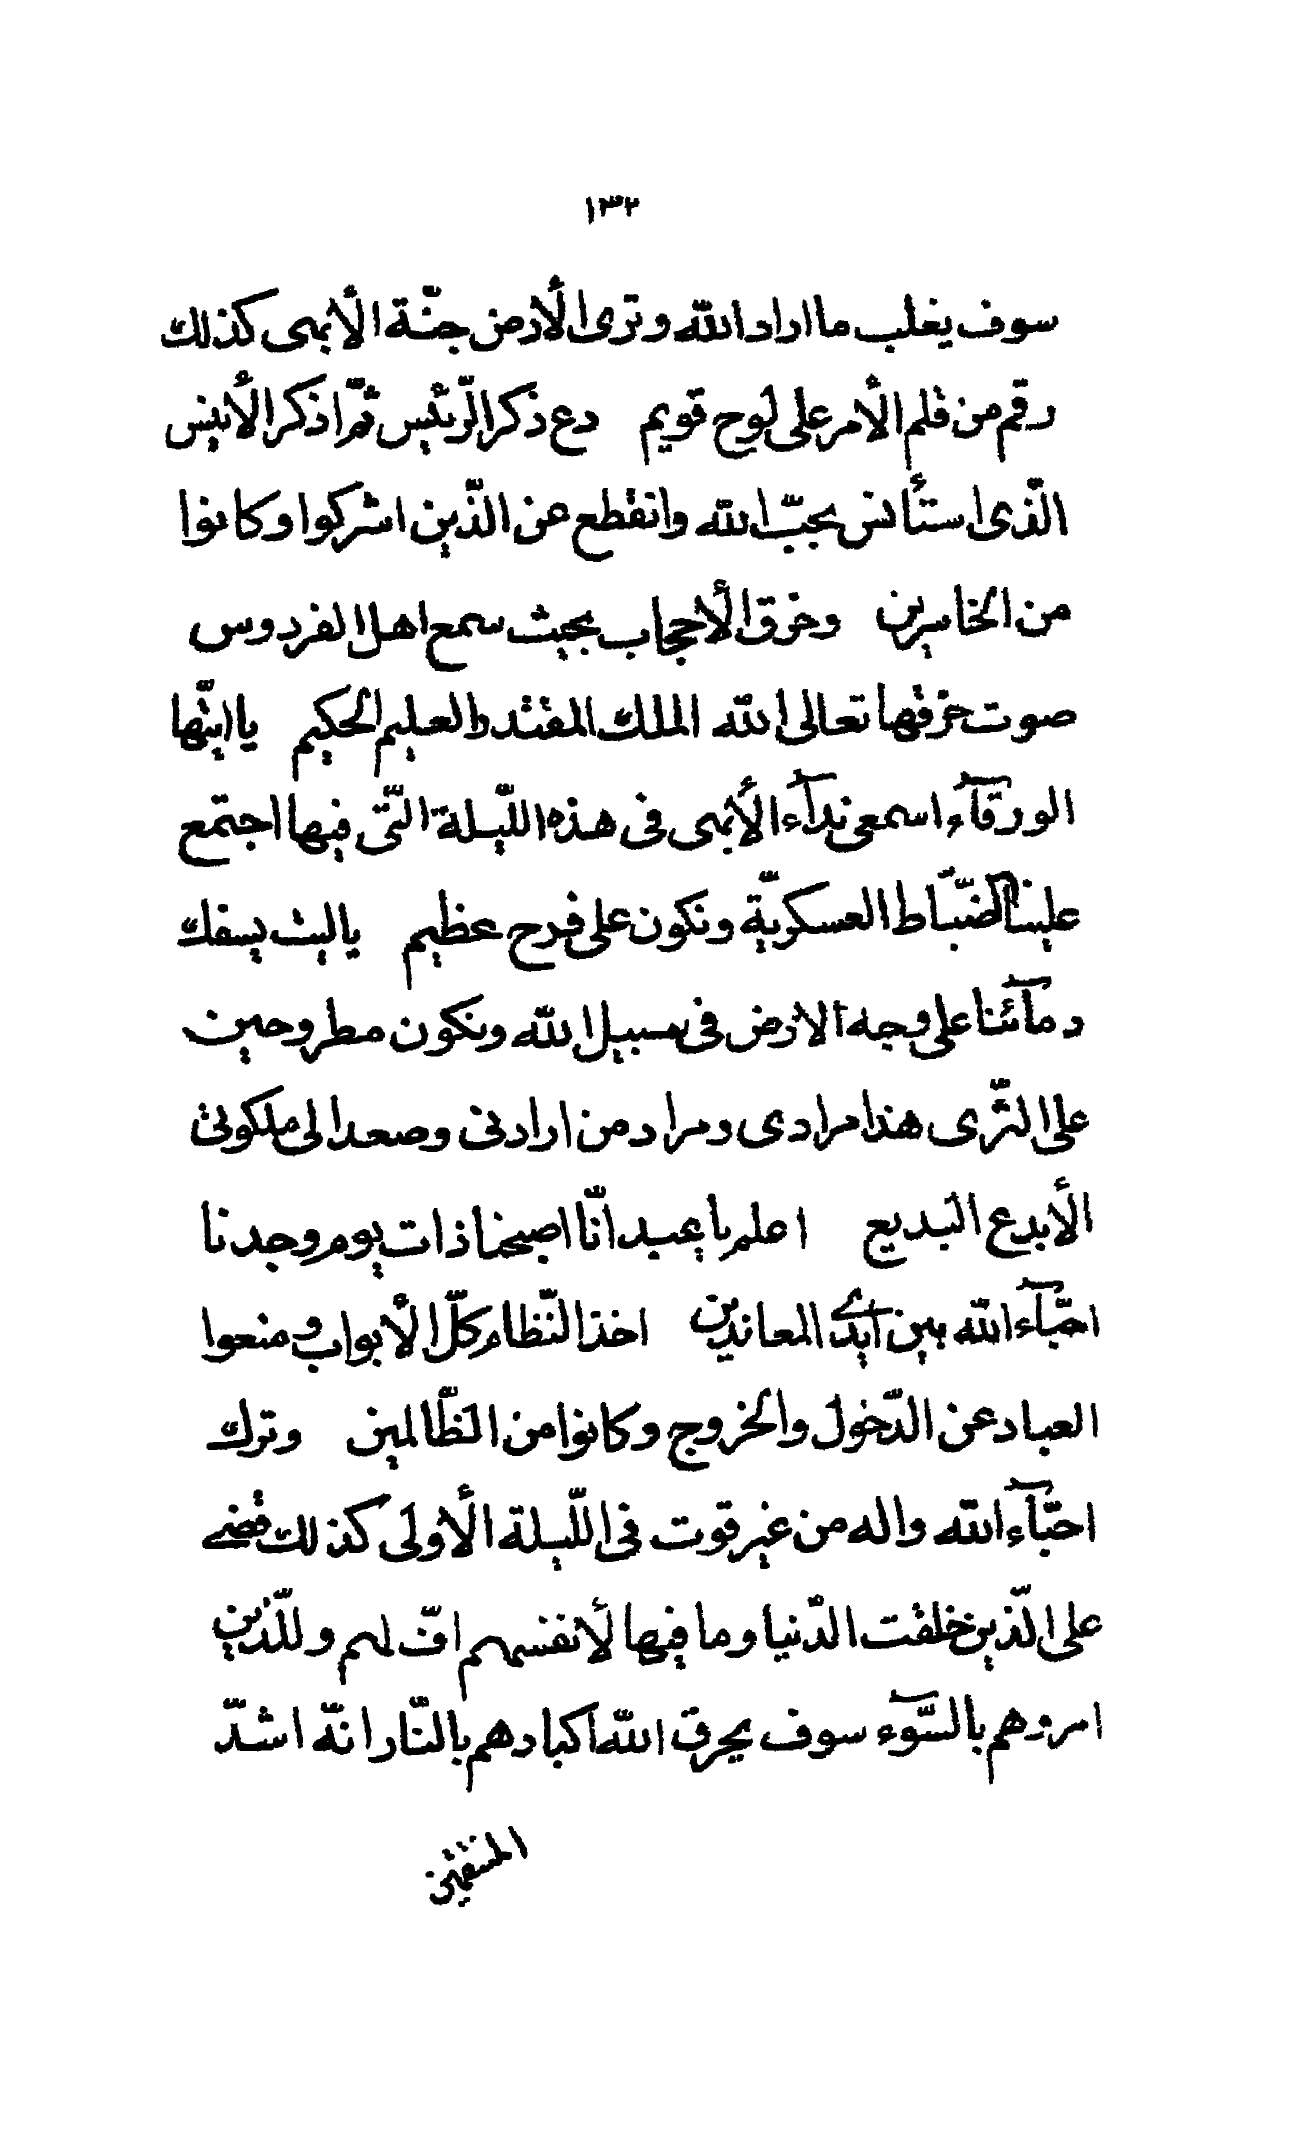 ١٣٢
سوف يغلب ما اراد الله و ترى الأرض جنّة الأبهى كذلك
رقم من قلم الأمر على لوح قويم دع ذكر الرّئيس ثمّ اذكر الأنيس
الّذى استأنس بحبّ الله وانقطع عن الذّين اشركوا و كانوا
من الخاسرين و خرق الأحجاب بحيث سمع اهل الفردوس
صوت خرقها تعالى الله الملك المقتدر العليم الحكيم يا ايتّها
الورقآء اسمعى ندآء الأبهى فى هذه اللّيلة الّتى فيها اجتمع
علينا الضّبّاط العسكريّة و نكون على فرح عظيم يا ليت يسفك
دمآئنا على وجه الارض فى سبيل الله و نكون مطروحين
على الثّرى هذا مرادى و مراد من ارادنى و صعد الى ملكوتى
الأبدع البديع اعلم يا عبد انّا اصبحنا ذات يوم وجدنا
احبّآء الله بين ايدى المعاندين اخذ النّظام كلّ الأبواب و منعوا
العباد عن الدّخول والخروج و كانوا من الظّالمين و ترك
احبّآء الله و اله من غير قوت فى اللّيلة الأولى كذلك قضے
على الّذين خلقت الدّنيا و ما فيها لأنفسهم افّ لهم و للّذين
امروهم بالسّوٓء سوف يحرق الله اكبادهم بالنّار انّه اشدّ
المنتقمين